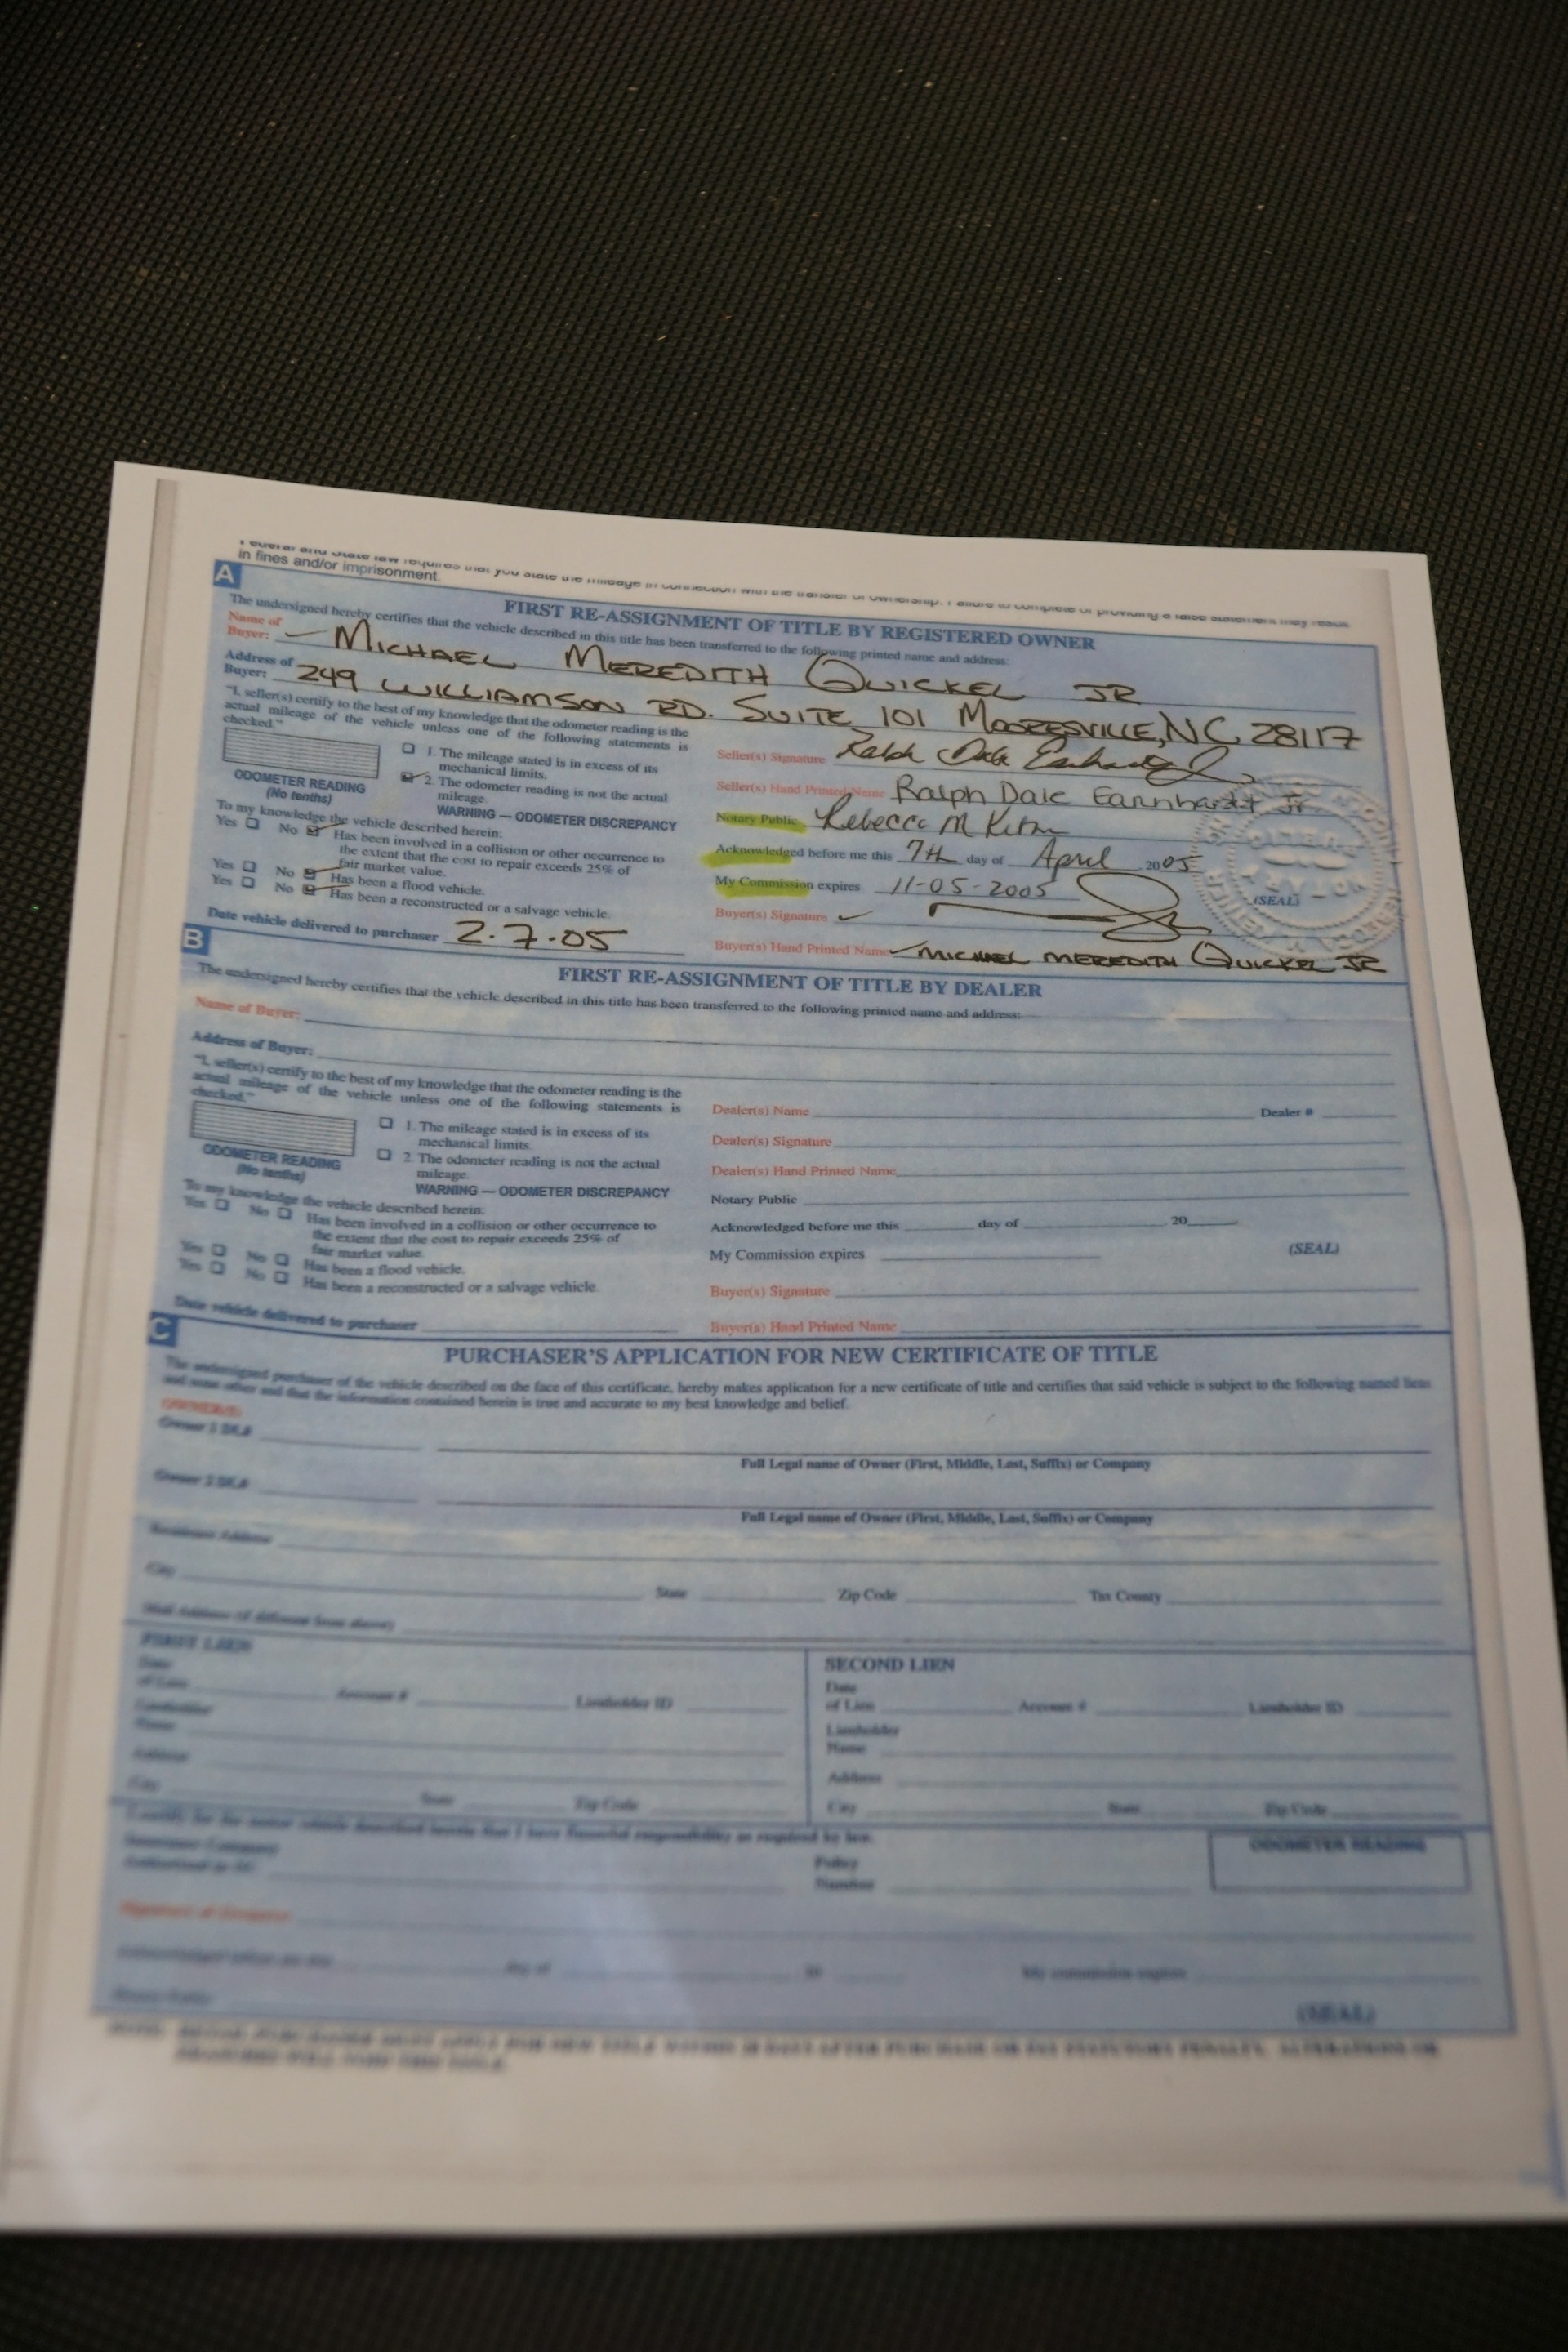 Federal and State law requires that you state the mileage in connection with the transfer of ownership. Failure to complete or providing a false statement may result
in fines and/or imprisonment.
A
FIRST RE-ASSIGNMENT OF TITLE BY REGISTERED OWNER
The undersigned hereby certifies that the vehicle described in this title has been transferred to the following printed name and address:
Name of
Buyer: MICHAEL MEREDITH QUICKEL JR
Address of
Buyer: 249 WILLIAMSON RD. SUITE 101 MOORESVILLE, NC 28117
"I, seller(s) certify to the best of my knowledge that the odometer reading is the
actual mileage of the vehicle unless one of the following statements is
checked."
1. The mileage stated is in excess of its
mechanical limits.
2. The odometer reading is not the actual
mileage.
WARNING — ODOMETER DISCREPANCY
ODOMETER READING
(No tenths)
To my knowledge the vehicle described herein:
Yes No Has been involved in a collision or other occurrence to
the extent that the cost to repair exceeds 25% of
fair market value.
Yes No Has been a flood vehicle.
Yes No Has been a reconstructed or a salvage vehicle.
Date vehicle delivered to purchaser 2.7.05
Seller(s) Signature Ralph Dale Earnhardt Jr
Seller(s) Hand Printed Name Ralph Dale Earnhardt Jr
Notary Public Rebecca M
Acknowledged before me this 7th day of April 2005
My Commission expires 11-05-2005
(SEAL)
Buyer(s) Signature
Buyer(s) Hand Printed Name MICHAEL MEREDITH QUICKEL JR
B
FIRST RE-ASSIGNMENT OF TITLE BY DEALER
The undersigned hereby certifies that the vehicle described in this title has been transferred to the following printed name and address:
Name of Buyer:
Address of Buyer:
"I, seller(s) certify to the best of my knowledge that the odometer reading is the
actual mileage of the vehicle unless one of the following statements is
checked."
1. The mileage stated is in excess of its
mechanical limits.
2. The odometer reading is not the actual
mileage.
WARNING — ODOMETER DISCREPANCY
ODOMETER READING
(No tenths)
To my knowledge the vehicle described herein:
Yes No Has been involved in a collision or other occurrence to
the extent that the cost to repair exceeds 25% of
fair market value.
Yes No Has been a flood vehicle.
Yes No Has been a reconstructed or a salvage vehicle.
Date vehicle delivered to purchaser
Dealer(s) Name Dealer #
Dealer(s) Signature
Dealer(s) Hand Printed Name
Notary Public
Acknowledged before me this day of 20
My Commission expires
(SEAL)
Buyer(s) Signature
Buyer(s) Hand Printed Name
C
PURCHASER'S APPLICATION FOR NEW CERTIFICATE OF TITLE
The undersigned purchaser of the vehicle described on the face of this certificate, hereby makes application for a new certificate of title and certifies that said vehicle is subject to the following named liens
and none other and that the information contained herein is true and accurate to my best knowledge and belief.
OWNER(S)
Owner 1 DL#
Full Legal name of Owner (First, Middle, Last, Suffix) or Company
Owner 2 DL#
Full Legal name of Owner (First, Middle, Last, Suffix) or Company
Residence Address
City State Zip Code Tax County
Mail Address (if different from above)
FIRST LIEN
Date
of Lien Account # Lienholder ID
Lienholder
Name
Address
City State Zip Code
SECOND LIEN
Date
of Lien Account # Lienholder ID
Lienholder
Name
Address
City State Zip Code
I certify for the motor vehicle described herein that I have financial responsibility as required by law.
Insurance Company
Authorized in NC
Policy
Number
ODOMETER READING
Signature of
Acknowledged before me this day of 20 My commission expires
Notary Public
(SEAL)
NOTE: RETAIL PURCHASER MUST APPLY FOR NEW TITLE WITHIN 28 DAYS AFTER PURCHASE OR PAY STATUTORY PENALTY. ALTERATIONS OR
ERASURES WILL VOID THIS TITLE.